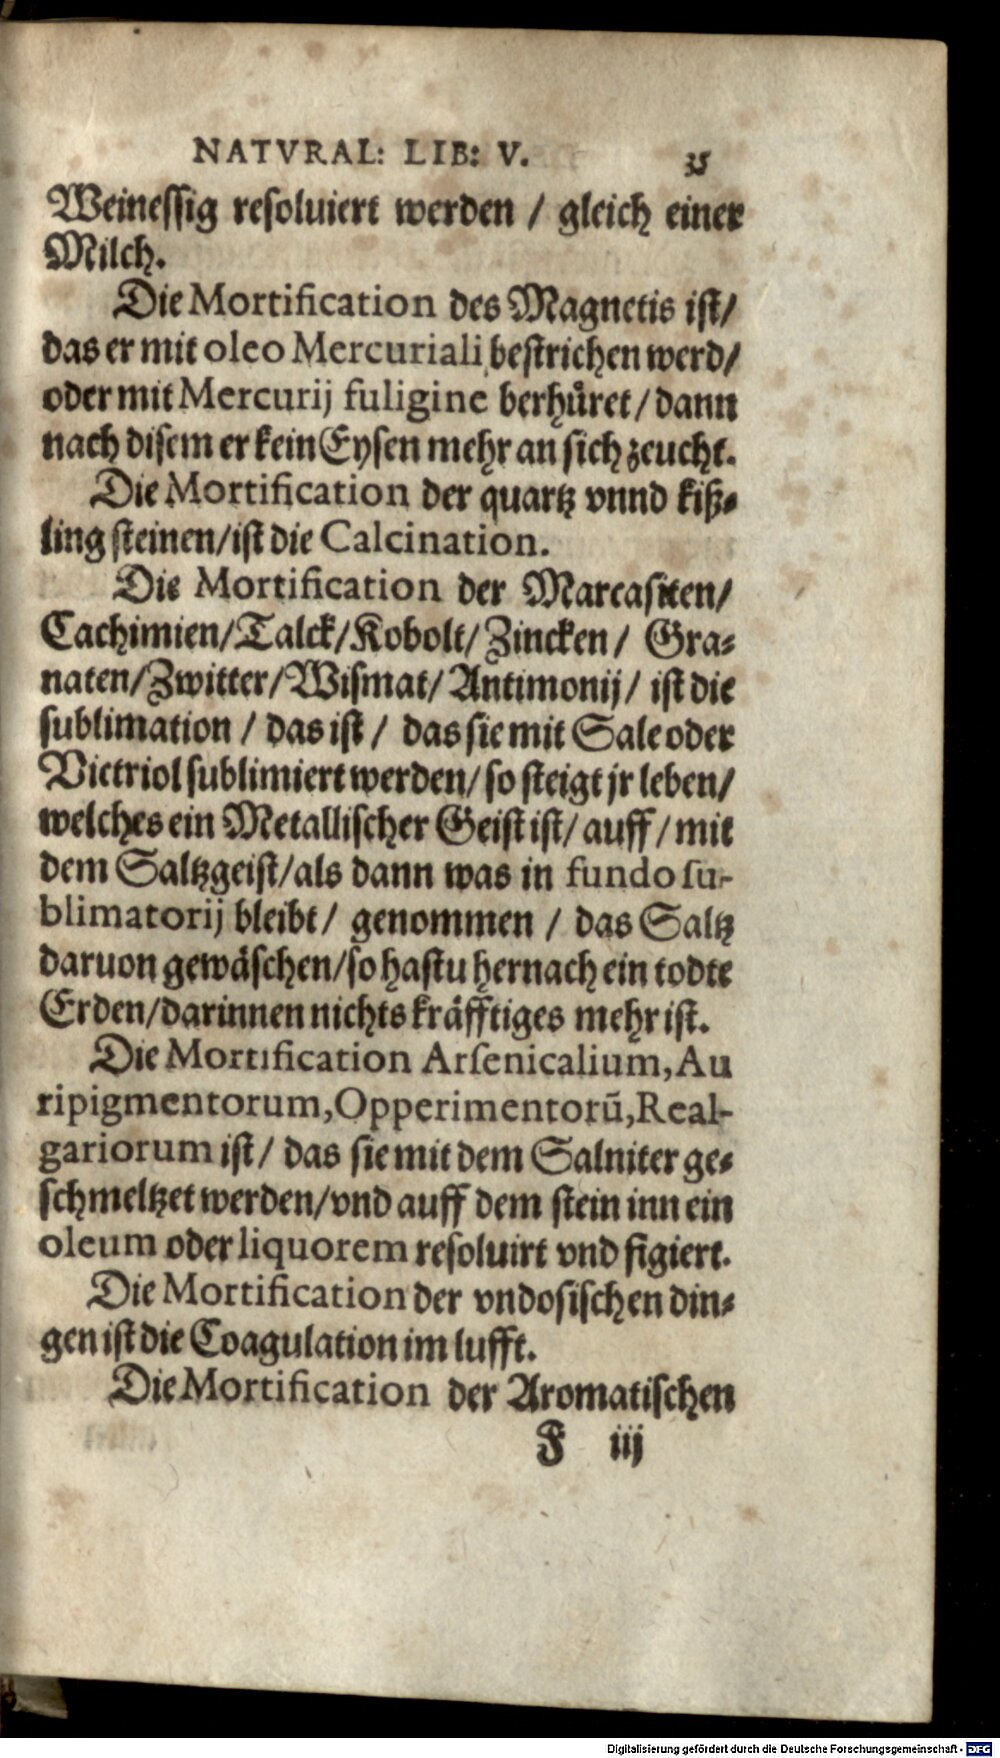 NATVRAL: LIB: V. 35
Weinessig resoluiert werden / gleich einer
Milch.
Die Mortification des Magnetis ist/
das er mit oleo Mercuriali bestrichen werd/
oder mit Mercurij fuligine berhůret / dann
nach disem er kein Eysen mehr an sich zeucht.
Die Mortification der quartz vnnd kiß-
ling steinen/ist die Calcination.
Die Mortification der Marcasiten/
Cachimien/Talck/Kobolt/Zincken / Gra-
naten/Zwitter/Wismat/Antimonij/ ist die
sublimation / das ist / das sie mit Sale oder
Victriol sublimiert werden/so steigt jr leben/
welches ein Metallischer Geist ist/ auff / mit
dem Saltzgeist/als dann was in fundo su-
blimatorij bleibt/ genommen / das Saltz
daruon gewäschen/so hastu hernach ein todte
Erden/darinnen nichts kräfftiges mehr ist.
Die Mortification Arsenicalium, Au
ripigmentorum, Opperimentorũ, Real-
gariorum ist/ das sie mit dem Salniter ge-
schmeltzet werden/vnd auff dem stein inn ein
oleum oder liquorem resoluirt vnd figiert.
Die Mortification der vndosischen din-
gen ist die Coagulation im lufft.
Die Mortification der Aromatischen
F iij
Digitalisierung gefördert durch die Deutsche Forschungsgemeinschaft - DFG